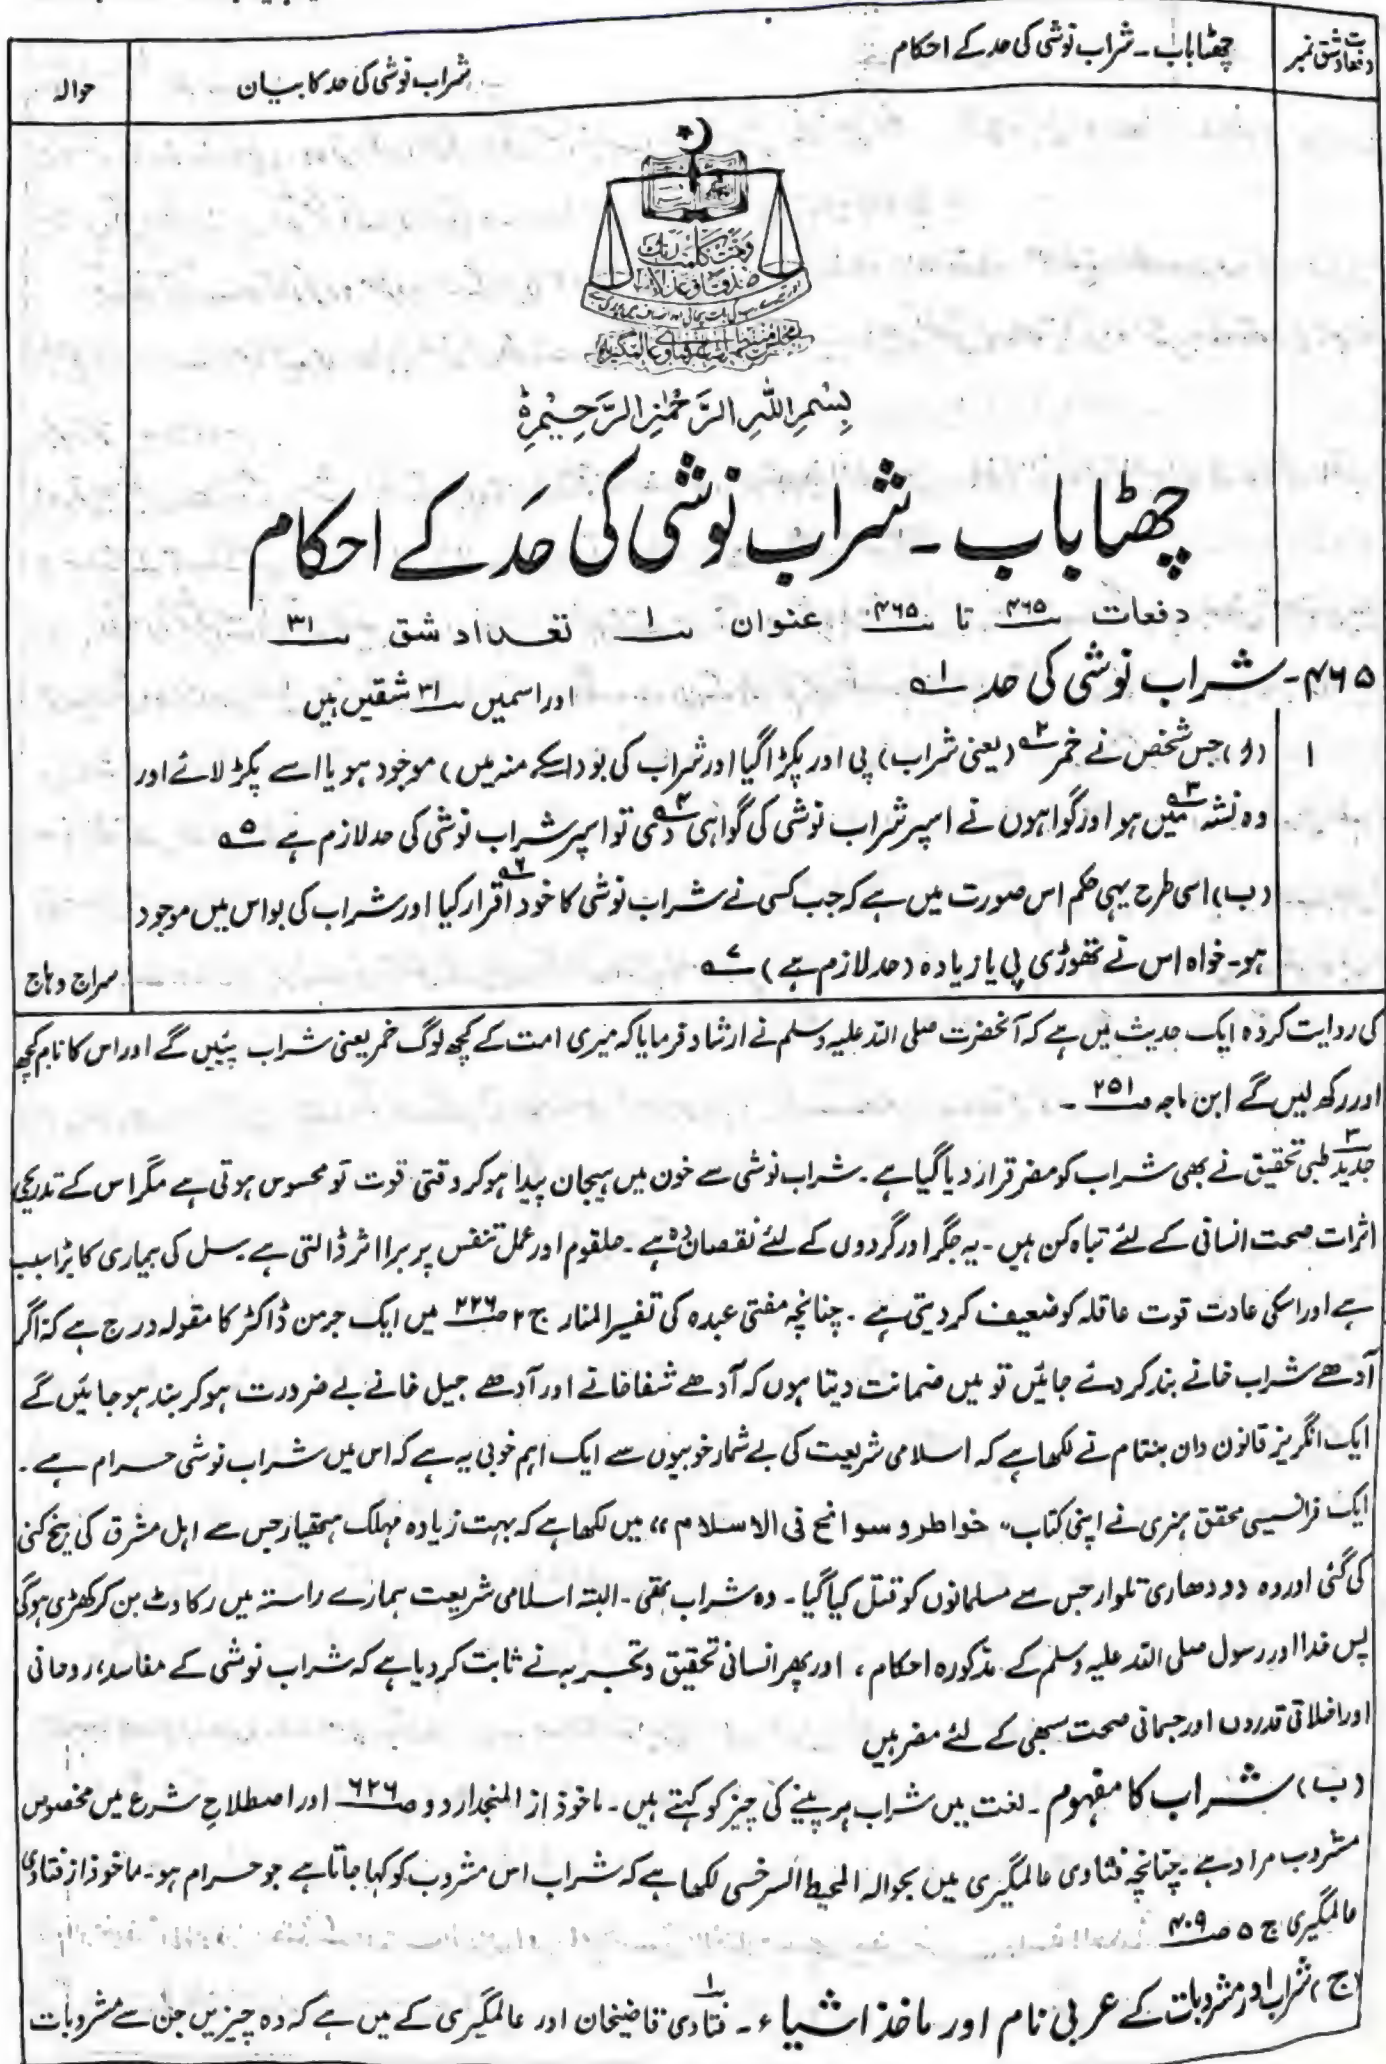 دفعات و شق نمبر
چھٹا باب ۔ شراب نوشی کی حد کے احکام
شراب نوشی کی حد کا بیان
حوالہ
وتمت کلمت ربک
صدقا وعدلا
بِسْمِ اللهِ الرَّحْمٰنِ الرَّحِیْمِ ۃ
چھٹا باب ۔ شراب نوشی کی حَد کے احکام
دفعات ۴۶۵ تا ۴۶۵ عنوان ۱ تعداد شق ۳۱
۴۶۵ - شراب نوشی کی حد ۱ اور اسمیں ۳۱ شقیں ہیں
۱ (ا) جس شخص نے خمر ۲ (یعنی شراب) پی اور پکڑا گیا اور شراب کی بو (اسکے منہ میں) موجود ہو یا اسے پکڑ لائے اور
وہ نشہ ۳ میں ہو اور گواہوں نے اسپر شراب نوشی کی گواہی ۴ دی تو اسپر شراب نوشی کی حد لازم ہے ۵
(ب) اسی طرح یہی حکم اس صورت میں ہے کہ جب کسی نے شراب نوشی کا خود اقرار ۶ کیا اور شراب کی بو اس میں موجود
ہو ۔ خواہ اس نے تھوڑی پی یا زیادہ (حد لازم ہے) ۷
سراج وہاج
کی روایت کردہ ایک حدیث میں ہے کہ آنحضرت صلی اللہ علیہ وسلم نے ارشاد فرمایا کہ میری امت کے کچھ لوگ خمر یعنی شراب پئیں گے اور اس کا نام کچھ
اور رکھ لیں گے ابن ماجہ ص ۲۵۱ ۔
۳ جدید طبی تحقیق نے بھی شراب کو مضر قرار دیا گیا ہے ۔ شراب نوشی سے خون میں ہیجان پیدا ہوکر وقتی قوت تو محسوس ہوتی ہے مگر اس کے تدریجی
اثرات صحت انسانی کے لئے تباہ کن ہیں ۔ یہ جگر اور گردوں کے لئے نقصان دہ ہے ۔ حلقوم اور عمل تنفس پر برا اثر ڈالتی ہے ۔ سل کی بیماری کا بڑا سبب
ہے اور اسکی عادت قوت عاقلہ کو ضعیف کر دیتی ہے ۔ چنانچہ مفتی عبدہ کی تفسیر المنار ج ۲ ص ۲۲۶ میں ایک جرمن ڈاکٹر کا مقولہ درج ہے کہ اگر
آدھے شراب خانے بند کر دئے جائیں تو میں ضمانت دیتا ہوں کہ آدھے شفاخانے اور آدھے جیل خانے بے ضرورت ہوکر بند ہو جائیں گے
ایک انگریز قانون دان بنتام نے لکھا ہے کہ اسلامی شریعت کی بے شمار خوبیوں سے ایک اہم خوبی یہ ہے کہ اس میں شراب نوشی حرام ہے ۔
ایک فرانسیسی محقق ہنری نے اپنی کتاب ،، خواطر و سوانح فی الاسلام ،، میں لکھا ہے کہ بہت زیادہ مہلک ہتھیار جس سے اہل مشرق کی بیخ کنی
کی گئی اور وہ دو دھاری تلوار جس سے مسلمانوں کو قتل کیا گیا ۔ وہ شراب تھی ۔ البتہ اسلامی شریعت ہمارے راستہ میں رکاوٹ بن کر کھڑی ہوگی
پس خدا اور رسول صلی اللہ علیہ وسلم کے مذکورہ احکام ، اور پھر انسانی تحقیق و تجربہ نے ثابت کردیا ہے کہ شراب نوشی کے مفاسد، روحانی
اور اخلاقی قدروں اور جسمانی صحت سبھی کے لئے مضر ہیں
(ب) شراب کا مفہوم ۔ لغت میں شراب ہر پینے کی چیز کو کہتے ہیں ۔ ماخوذ از المنجد اردو ص ۶۲۶ اور اصطلاحِ شرع میں مخصوص
مشروب مراد ہے ۔ چنانچہ فتاوی عالمگیری میں بحوالہ المحیط السرخسی لکھا ہے کہ شراب اس مشروب کو کہا جاتا ہے جو حرام ہو ۔ ماخوذ از فتاوی
عالمگیری ج ۵ ص ۴۰۹
(ج) شراب اور مشروبات کے عربی نام اور ماخذ اشیاء ۔ ۱ فتاوی قاضیخان اور عالمگیری کے میں ہے کہ وہ چیزیں جن سے مشروبات